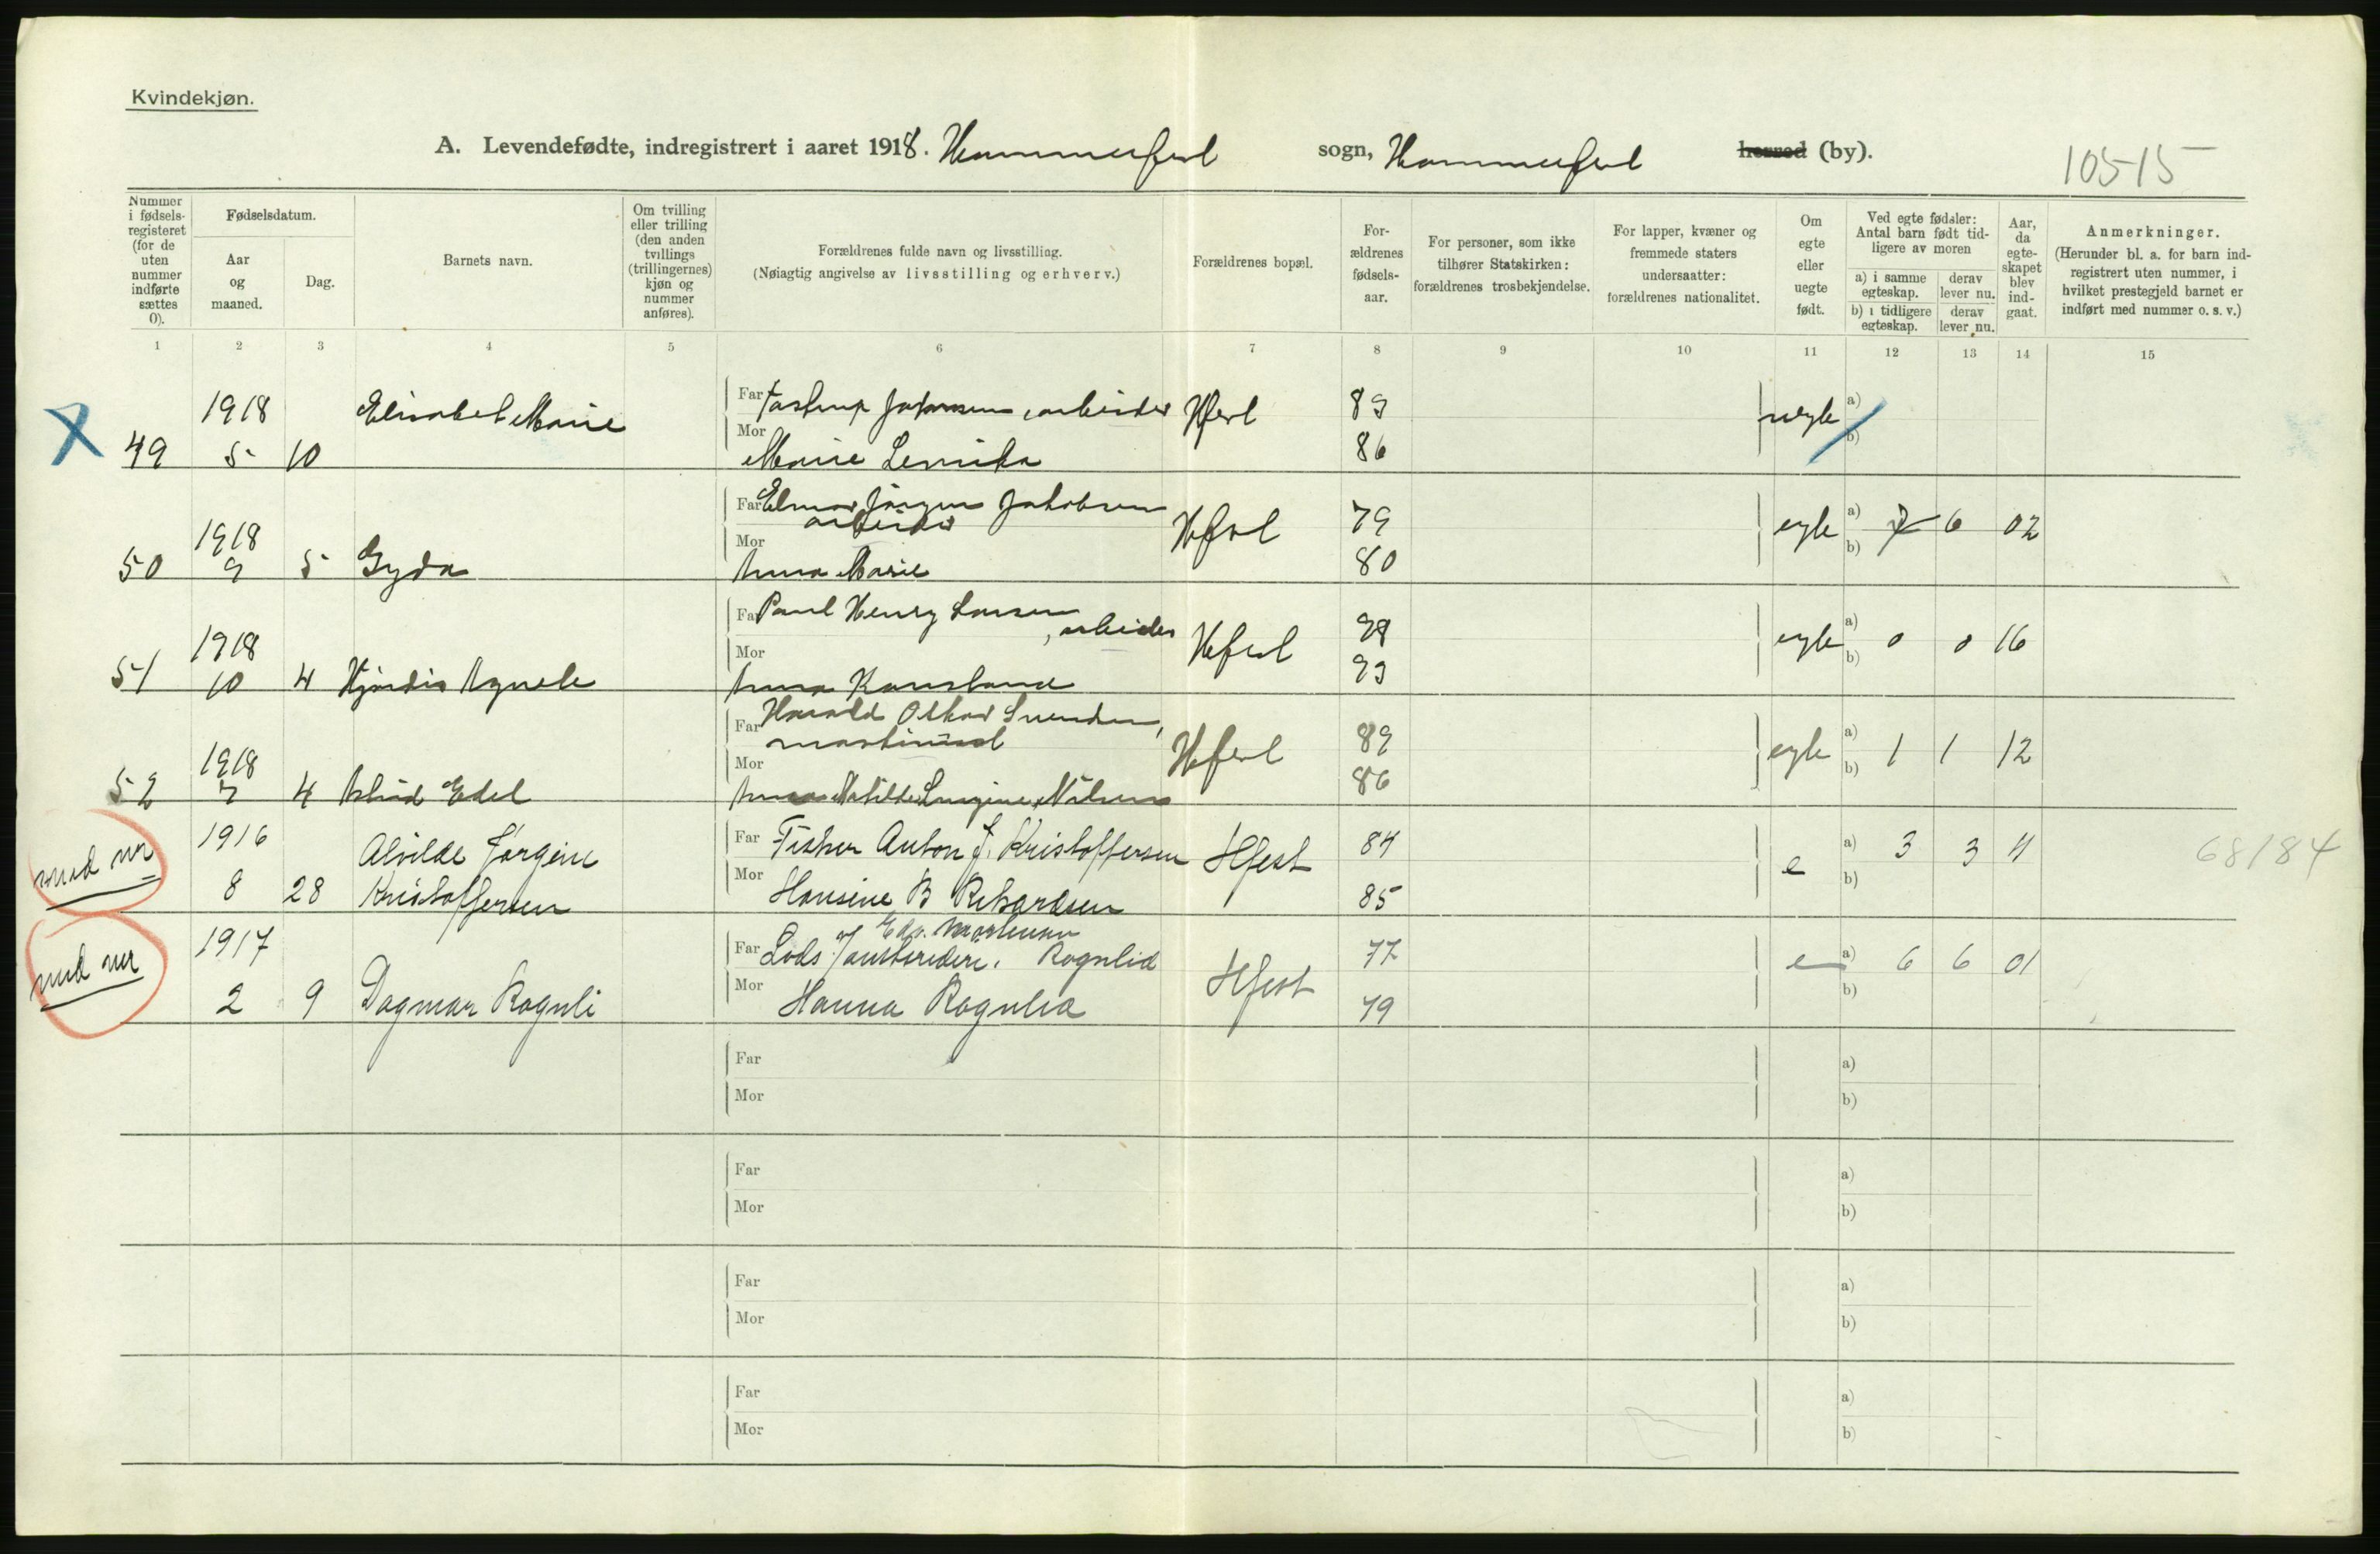 Kvindekjøn.
A. Levendefødte, indregistrert i aaret 1918. Hammerfest sogn, Hammerfest herred (by). 10515
Nummer i fødsels-registeret (for de uten nummer indførte sættes 0).
Fødselsdatum.
Aar og maaned.
Dag.
Barnets navn.
Om tvilling eller trilling (den anden tvillings (trillingernes) kjøn og nummer anføres).
Forældrenes fulde navn og livsstilling.
(Nøiagtig angivelse av livsstilling og erhverv.)
Forældrenes bopæl.
For-ældrenes fødsels-aar.
For personer, som ikke tilhører Statskirken: forældrenes trosbekjendelse.
For lapper, kvæner og fremmede staters undersaatter: forældrenes nationalitet.
Om egte eller uegte født.
Ved egte fødsler: Antal barn født tid-ligere av moren
a) i samme egteskap.
derav lever nu.
b) i tidligere egteskap.
derav lever nu.
Aar, da egte-skapet blev ind-gaat.
Anmerkninger.
(Herunder bl. a. for barn ind-registrert uten nummer, i hvilket prestegjeld barnet er indført med nummer o. s. v.)
1 2 3 4 5 6 7 8 9 10 11 12 13 14 15
1918 Elisabet Marie Far Johansen, arbeider Hfest 89 uegte a)
49 5 10 Mor Marie 86 b)
1918 Far Elmar Jørgen Jakobsen arbeider Hfest 79 egte a) 7 6 02
50 9 5 Gyda Mor Anna Marie 80 b)
1918 Far Paul Henry Larsen, arbeider Hfest 98 egte a) 0 0 16
51 10 4 Hjørdis Agnete Mor Anna 93 b)
1918 Far Harald Oskar Svendsen, maskinist Hfest 89 egte a) 1 1 12
52 7 4 Astrid Edel Mor Anna Matilde Nilsen 86 b)
med nr 1916 Alvilde Jørgine Far Fisker Anton J. Kristoffersen Hfest 84 e a) 3 3 11 68184
8 28 Kristoffersen Mor Hansine B Rikardsen 85 b)
Edv. Mortensen
med nr 1917 Far Lods Rognlid Hfest 77 e a) 6 6 01
2 9 Dagmar Rognli Mor Hanna Rognlid 79 b)
Far a)
Mor b)
Far a)
Mor b)
Far a)
Mor b)
Far a)
Mor b)